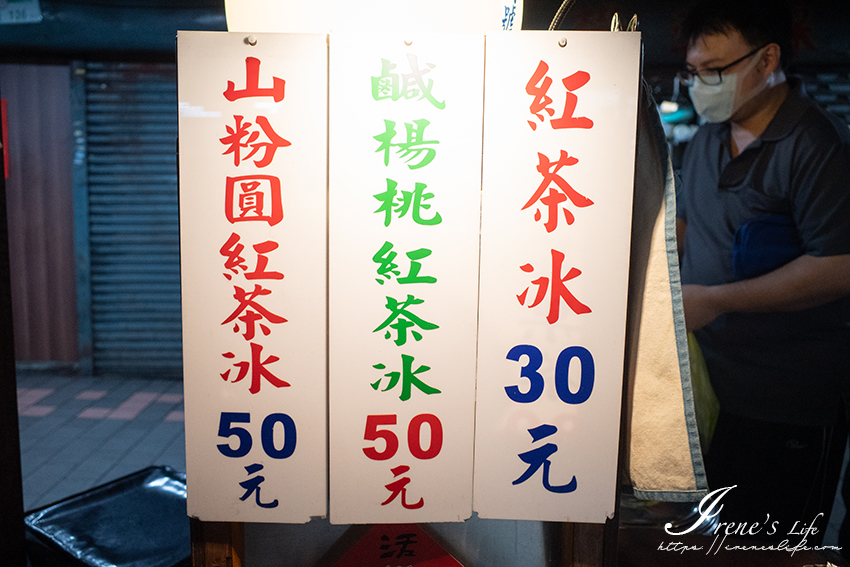 136
號
山粉圓紅茶冰
50
元
鹹楊桃紅茶冰
50
元
紅茶冰
30
元
活
Irene's Life
https://ireneslife.com